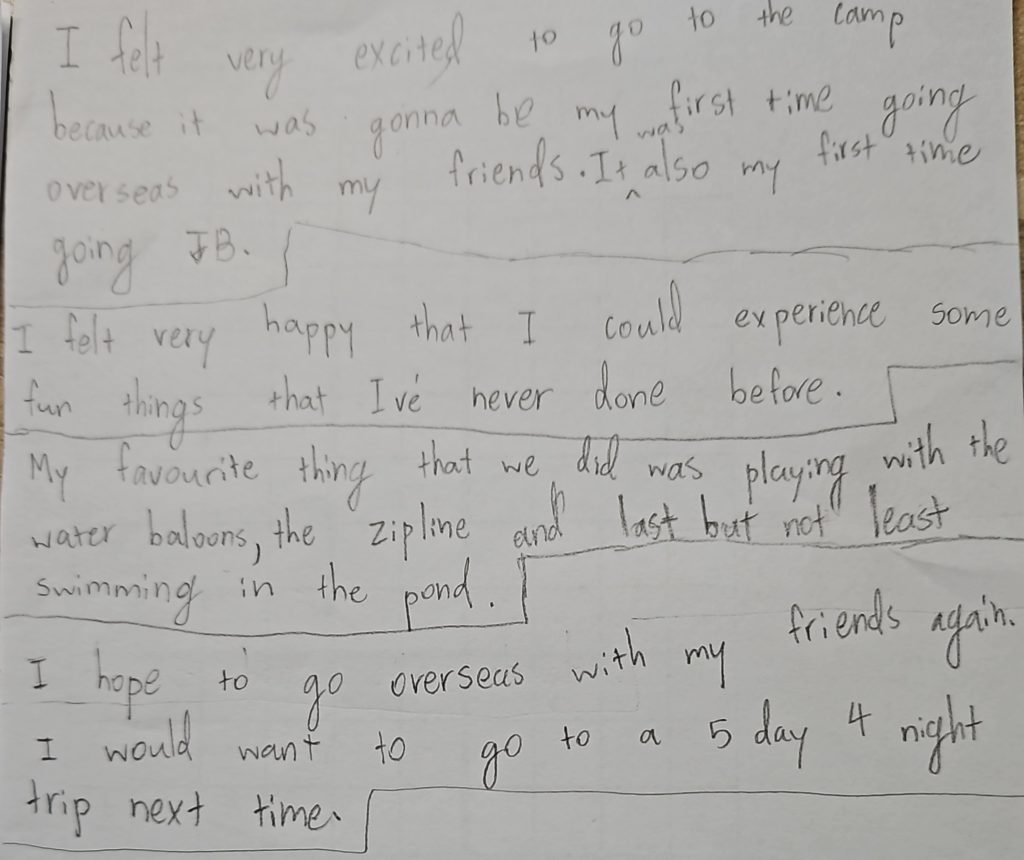 I felt very excited to go to the camp
because it was gonna be my first time going
overseas with my friends. It was also my first time
going JB.
I felt very happy that I could experience some
fun things that I've never done before.
My favourite thing that we did was playing with the
water baloons, the zipline and last but not least
swimming in the pond.
I hope to go overseas with my friends again.
I would want to go to a 5 day 4 night
trip next time.